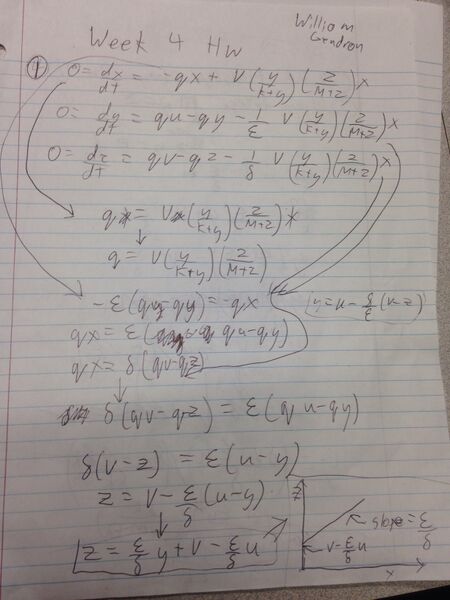 Week 4 Hw
William Gendron
① 0 = dx/dt = -qx + V(y/(k+y))(z/(M+z))x
0 = dy/dt = qu - qy - 1/ε V(y/(k+y))(z/(M+z))x
0 = dz/dt = qv - qz - 1/δ V(y/(k+y))(z/(M+z))x
qx = V(y/(k+y))(z/(M+z))x
q = V(y/(k+y))(z/(M+z))
-ε(qu-qy) = -qx
y = u - δ/ε(v-z)
qx = ε(qu-qy)
qx = δ(qv-qz)
δ(qv-qz) = ε(qu-qy)
δ(v-z) = ε(u-y)
z = v - ε/δ(u-y)
z = ε/δ y + v - ε/δ u
z
slope = ε/δ
v - ε/δ u
x